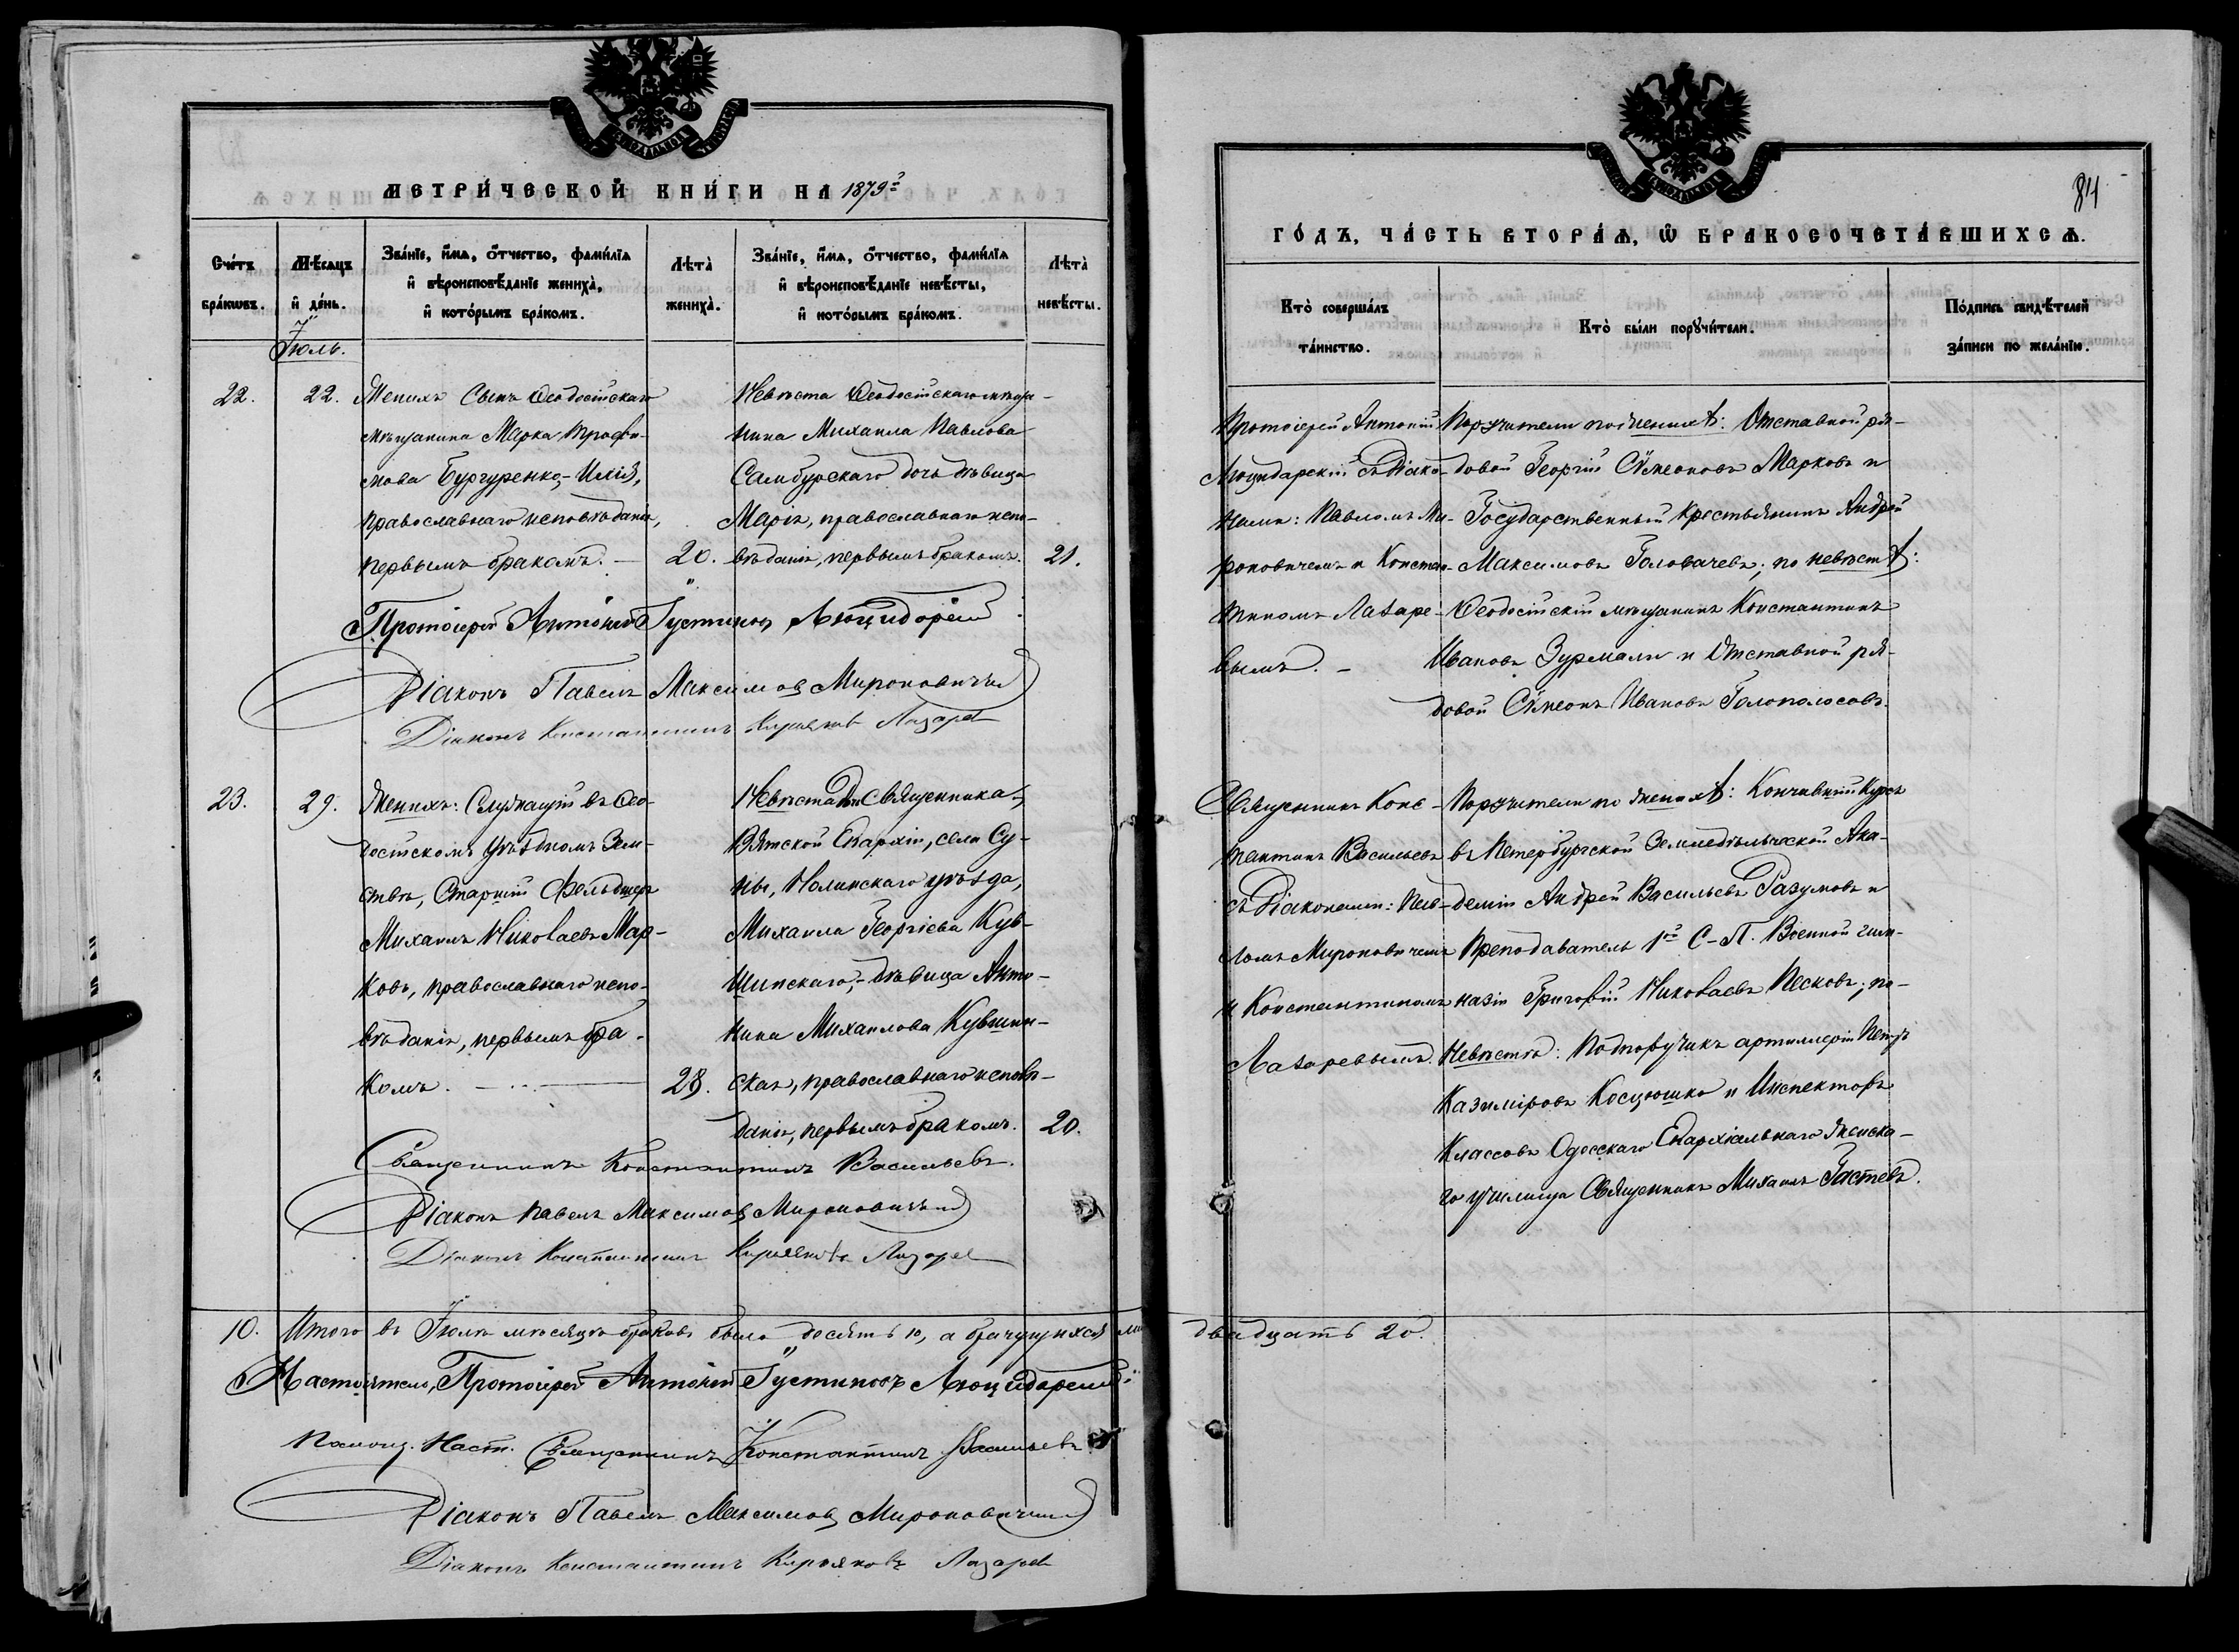 МЕТРИ́ЧЕСКОЙ КНИ́ГИ НА 1879й
Сче́тъ бра́кωвъ.
Мѣ́сѧцъ и҆ де́нь.
Зва́нїе, и҆́мѧ, ѻ҆́тчество, фами́лїѧ
и҆ вѣроисповѣ́данїе жениха̀,
и҆ кото́рымъ бра́комъ.
Лѣта̀ жениха̀.
Зва́нїе, и҆́мѧ, ѻ҆́тчество, фами́лїѧ
и҆ вѣроисповѣ́данїе невѣ́сты,
и҆ кото́рымъ бра́комъ.
Лѣта̀ невѣ́сты.
Іюль.
22.
22.
Женихъ Сынъ Ѳеодосійскаго
мѣщанина Марка Трофи-
мова Бургуренко, - Илія,
православнаго исповѣданія,
первымъ бракомъ. —
20.
Невѣста Ѳеодосійскаго мѣща-
нина Михаила Павлова
Самбурскаго дочь дѣвица
Марія, православнаго испо-
вѣданія, первымъ бракомъ.
21.
Протоіерей Антоній Іустиновъ Люцидарскій
Діаконъ Павелъ Максимовъ Мироновичъ
Діаконъ Константинъ Кирьяковъ Лазаревъ
23.
29.
Женихъ: Служащій въ Ѳео-
досійскомъ Уѣздномъ Зем-
ствѣ, Старшій Фельдшеръ
Михаилъ Николаевъ Мар-
ковъ, православнаго испо-
вѣданія, первымъ бра-
комъ. —
28.
Невѣста Священника
Вятской Епархіи, села Су-
ны, Нолинскаго уѣзда,
Михаила Георгіева Кув-
шинскаго, - дѣвица Анто-
нина Михаилова Кувшин-
ская, православнаго исповѣ-
данія, первымъ бракомъ.
20.
Священникъ Константинъ Васильевъ.
Діаконъ Павелъ Максимовъ Мироновичъ
Діаконъ Константинъ Кирьяковъ Лазаревъ
10. Итого въ Іюлѣ мѣсяцѣ браковъ было десять 10, а брачущихся
Настоятель, Протоіерей Антоній Іустиновъ Люцидарскій
Помощ. Наст. Священникъ Константинъ Васильевъ
Діаконъ Павелъ Максимовъ Мироновичъ
Діаконъ Константинъ Кирьяковъ Лазаревъ
84
ГО́ДЪ, ЧА́СТЬ ВТОРА́Ѧ, Ѽ БРАКОСОЧЕТА́ВШИХСѦ.
Кто̀ соверша́лъ
та́инство.
Кто̀ бы́ли порꙋчи́тели.
По́дпись свидѣ́телей
за́писи по жела́нїю.
Протоіерей Антоній
Люцидарскій съ Діако-
нами: Павломъ Ми-
роновичемъ и Констан-
тиномъ Лазаре-
вымъ. —
Поручители по женихѣ: Отставной ря-
довой Георгій Сѵмеоновъ Марковъ и
Государственный Крестьянинъ Андрей
Максимовъ Головачевъ; по невѣстѣ:
Ѳеодосійскій мѣщанинъ Константинъ
Ивановъ Зурмали и Отставной ря-
довой Сѵмеонъ Ивановъ Голополосовъ.
Священникъ Конс-
тантинъ Васильевъ
съ Діаконами: Пав-
ломъ Мироновичемъ
и Константиномъ
Лазаревымъ.
Поручители по женихѣ: Кончившій Курсъ
въ Петербургской Земледѣльческой Ака-
деміи Андрей Васильевъ Разумовъ и
Преподаватель 1й С-П. Военной гим-
назіи Григорій Николаевъ Песковъ; по-
Невѣстѣ: Подпоручикъ артиллеріи Петръ
Казиміровъ Косцюшко и Инспекторъ
Классовъ Одесскаго Епархіальнаго Женска-
го училища Священникъ Михаилъ Гастевъ.
двадцать 20.